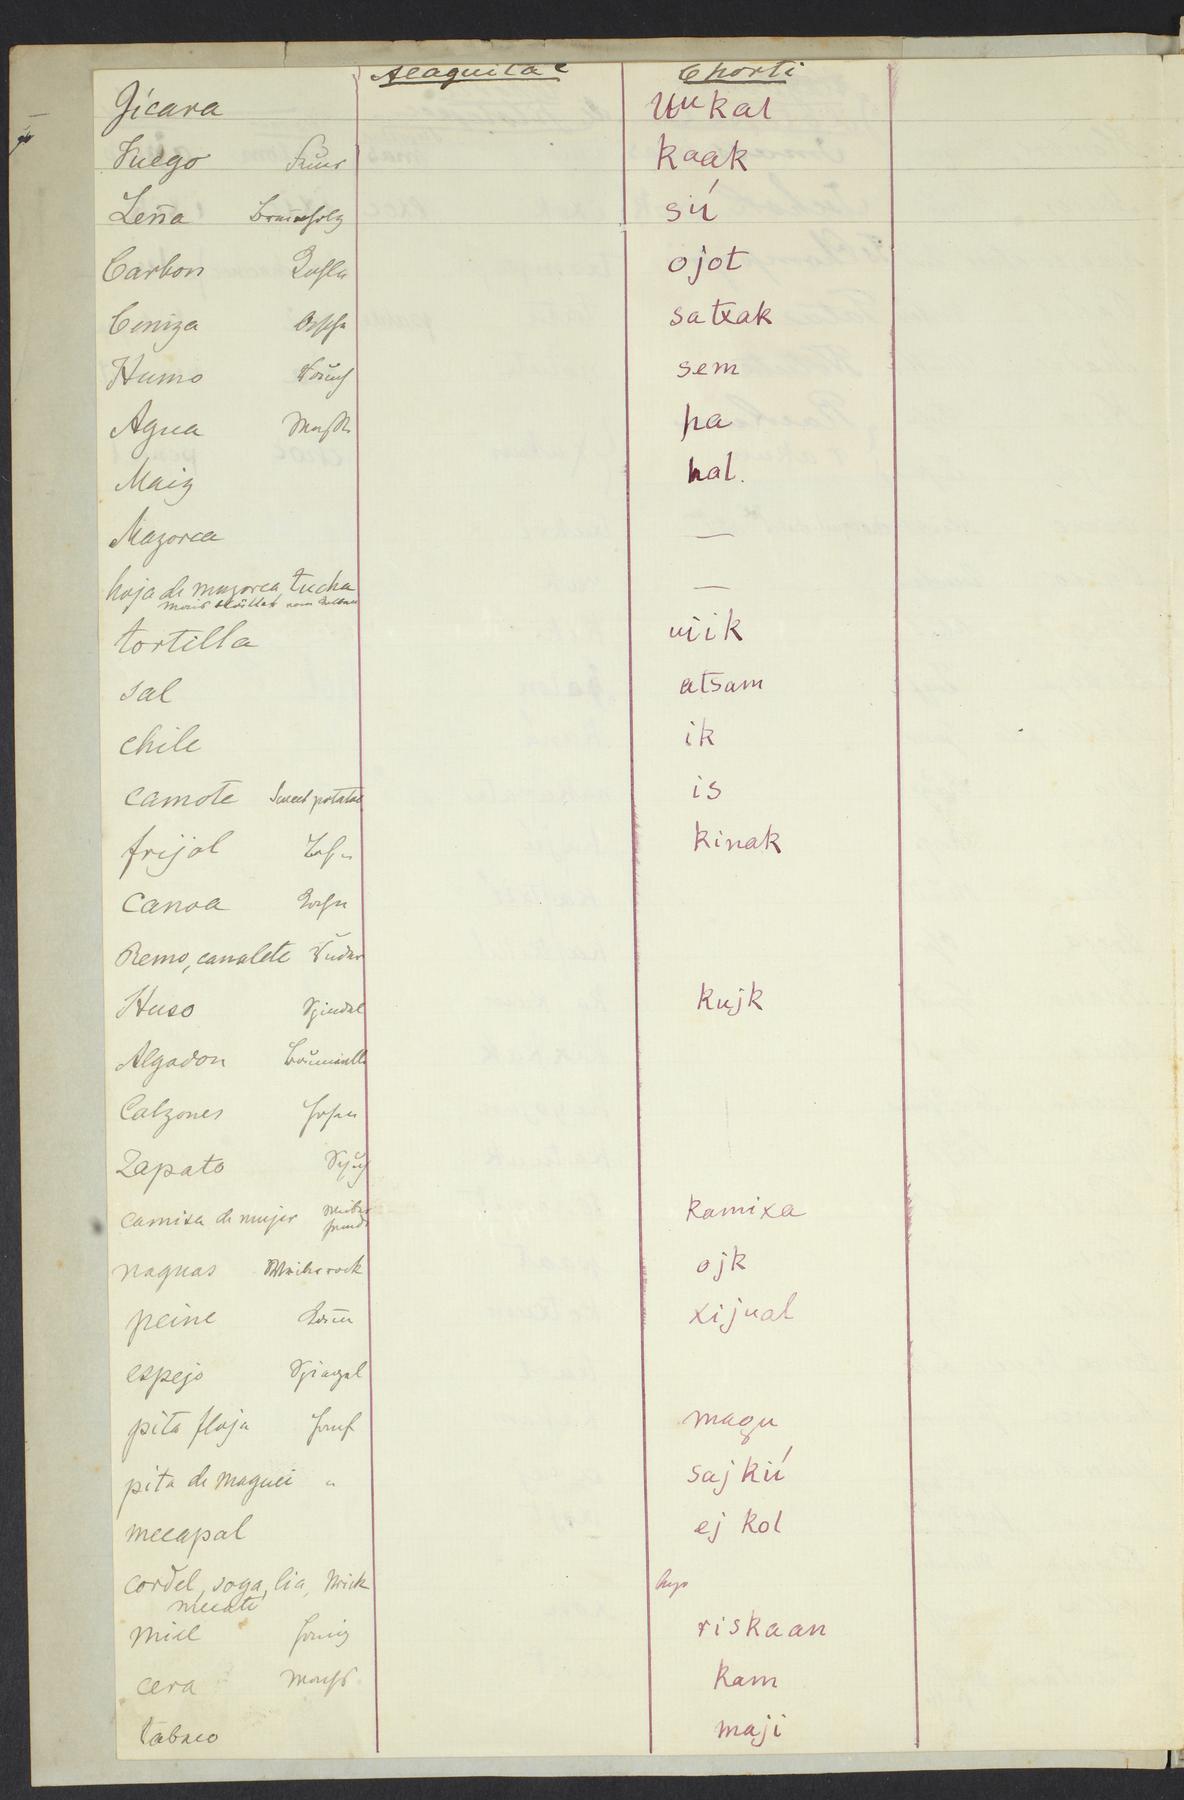 Chorti
Jícara
Fuego Feuer kaak
Leña Brennholz sií
Carbon Kohle ojot
Ceniza Asche satxak
Humo Rauch sem
Agua Wasser ha
Maiz nal.
Mazorca —
hoja de mazorca, tucha —
tortilla
sal atsam
chile ik
camote Sweet potatoe is
frijol Bohne kinak
canoa
Remo, canalete Ruder
Huso Spindel kujk
Algodon Baumwolle
Calzones Hosen
Zapato Schuh
camisa de mujer kamixa
naguas Weiberrock ojk
peine Kamm xijual
espejo Spiegel
pita floja Hanf magu
pita de maguei " sajkií
mecapal ej kol
cordel, soga, lia, Strick
mecate
miel Honig riskaan
cera Wachs kam
tabaco maji